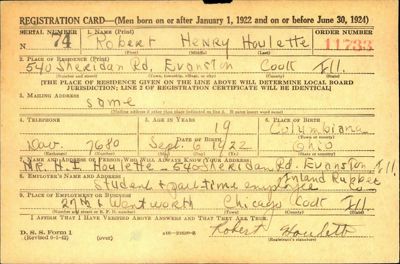 REGISTRATION CARD—(Men born on or after January 1, 1922 and on or before June 30, 1924)
SERIAL NUMBER 1. NAME (Print) ORDER NUMBER
N 74 Robert Henry Houlette 11733
(First) (Middle) (Last)
2. PLACE OF RESIDENCE (Print)
540 Sheridan Rd, Evanston Cook Ill.
(Number and street) (Town, township, village, or city) (County) (State)
[THE PLACE OF RESIDENCE GIVEN ON THE LINE ABOVE WILL DETERMINE LOCAL BOARD
JURISDICTION; LINE 2 OF REGISTRATION CERTIFICATE WILL BE IDENTICAL]
3. MAILING ADDRESS
same
[Mailing address if other than place indicated on line 2. If same insert word same]
4. TELEPHONE 5. AGE IN YEARS 6. PLACE OF BIRTH
19 Columbiana
DATE OF BIRTH
Dav. 7680 Sept. 9 1922 Ohio
7. NAME AND ADDRESS OF PERSON WHO WILL ALWAYS KNOW YOUR ADDRESS
Mr. H. I. Houlette - 540 Sheridan Rd. Evanston Ill.
8. EMPLOYER'S NAME AND ADDRESS Inland Rubber
Student & part time employee Co
9. PLACE OF EMPLOYMENT OR BUSINESS
27th & Wentworth Chicago Cook Ill.
(Number and street or R. F. D. number) (Town) (County) (State)
I AFFIRM THAT I HAVE VERIFIED ABOVE ANSWERS AND THAT THEY ARE TRUE.
D. S. S. Form 1 Robert Houlette
(Revised 6-9-42) (over) (Registrant's signature)